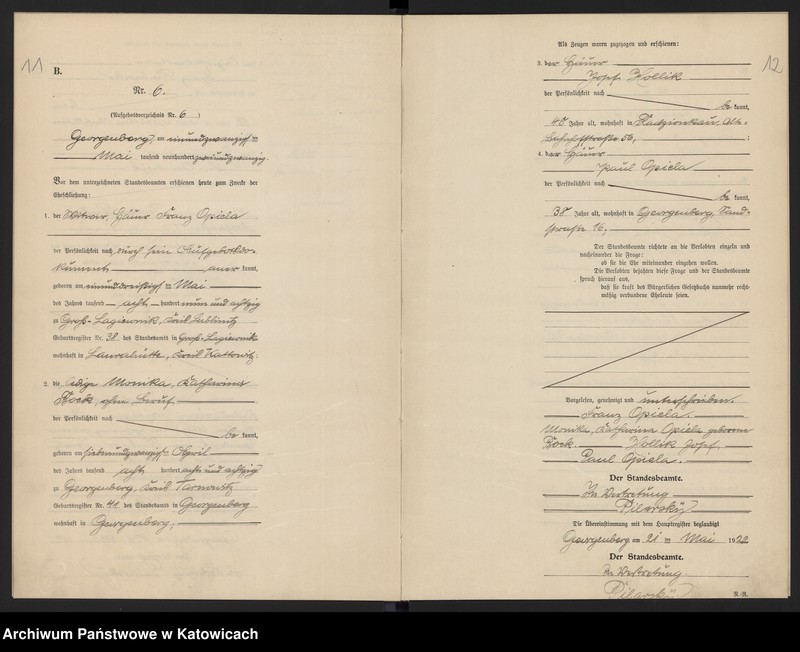 11
B.
Nr. 6.
(Aufgebotsverzeichnis Nr. 6)
Georgenberg, am einundzwanzigsten
Mai tausend neunhundert zweiundzwanzig.
Vor dem unterzeichneten Standesbeamten erschienen heute zum Zwecke der
Eheschließung:
1. der Witwer, Häuer Franz Opiela
der Persönlichkeit nach durch sein Aufgebotsdo-
kument aner kannt,
geboren am einunddreißigsten Mai
des Jahres tausend acht hundert neun und achtzig
zu Groß-Lagiewnik, Kreis Lublinitz
Geburtsregister Nr. 38 des Standesamts in Groß-Lagiewnik
wohnhaft in Laurahütte, Kreis Kattowitz;
2. die ledige Monika, Katharina
Kock, ohne Beruf
der Persönlichkeit nach
be kannt,
geboren am siebenundzwanzigsten April
des Jahres tausend acht hundert acht und achtzig
zu Georgenberg, Kreis Tarnowitz
Geburtsregister Nr. 41 des Standesamts in Georgenberg
wohnhaft in Georgenberg,
12
Als Zeugen waren zugezogen und erschienen:
3. der Häuer
Josef Kollik
der Persönlichkeit nach
be kannt,
40 Jahre alt, wohnhaft in Radzionkau, Alte-
Bahnhofstraße 56,
4. der Häuer
Paul Opiela
der Persönlichkeit nach
be kannt,
38 Jahre alt, wohnhaft in Georgenberg, Sand-
straße 16,
Der Standesbeamte richtete an die Verlobten einzeln und
nacheinander die Frage:
ob sie die Ehe miteinander eingehen wollen.
Die Verlobten bejahten diese Frage und der Standesbeamte
sprach hierauf aus,
daß sie kraft des Bürgerlichen Gesetzbuchs nunmehr recht-
mäßig verbundene Eheleute seien.
Vorgelesen, genehmigt und unterschrieben.
Franz Opiela.
Monika, Katharina Opiela geborene
Kock. Kollik Josef.
Paul Opiela.
Der Standesbeamte.
In Vertretung
Pilarsky
Die Übereinstimmung mit dem Hauptregister beglaubigt
Georgenberg am 21 ten Mai 1922
Der Standesbeamte.
In Vertretung
Pilarsky
R.-R.
Archiwum Państwowe w Katowicach